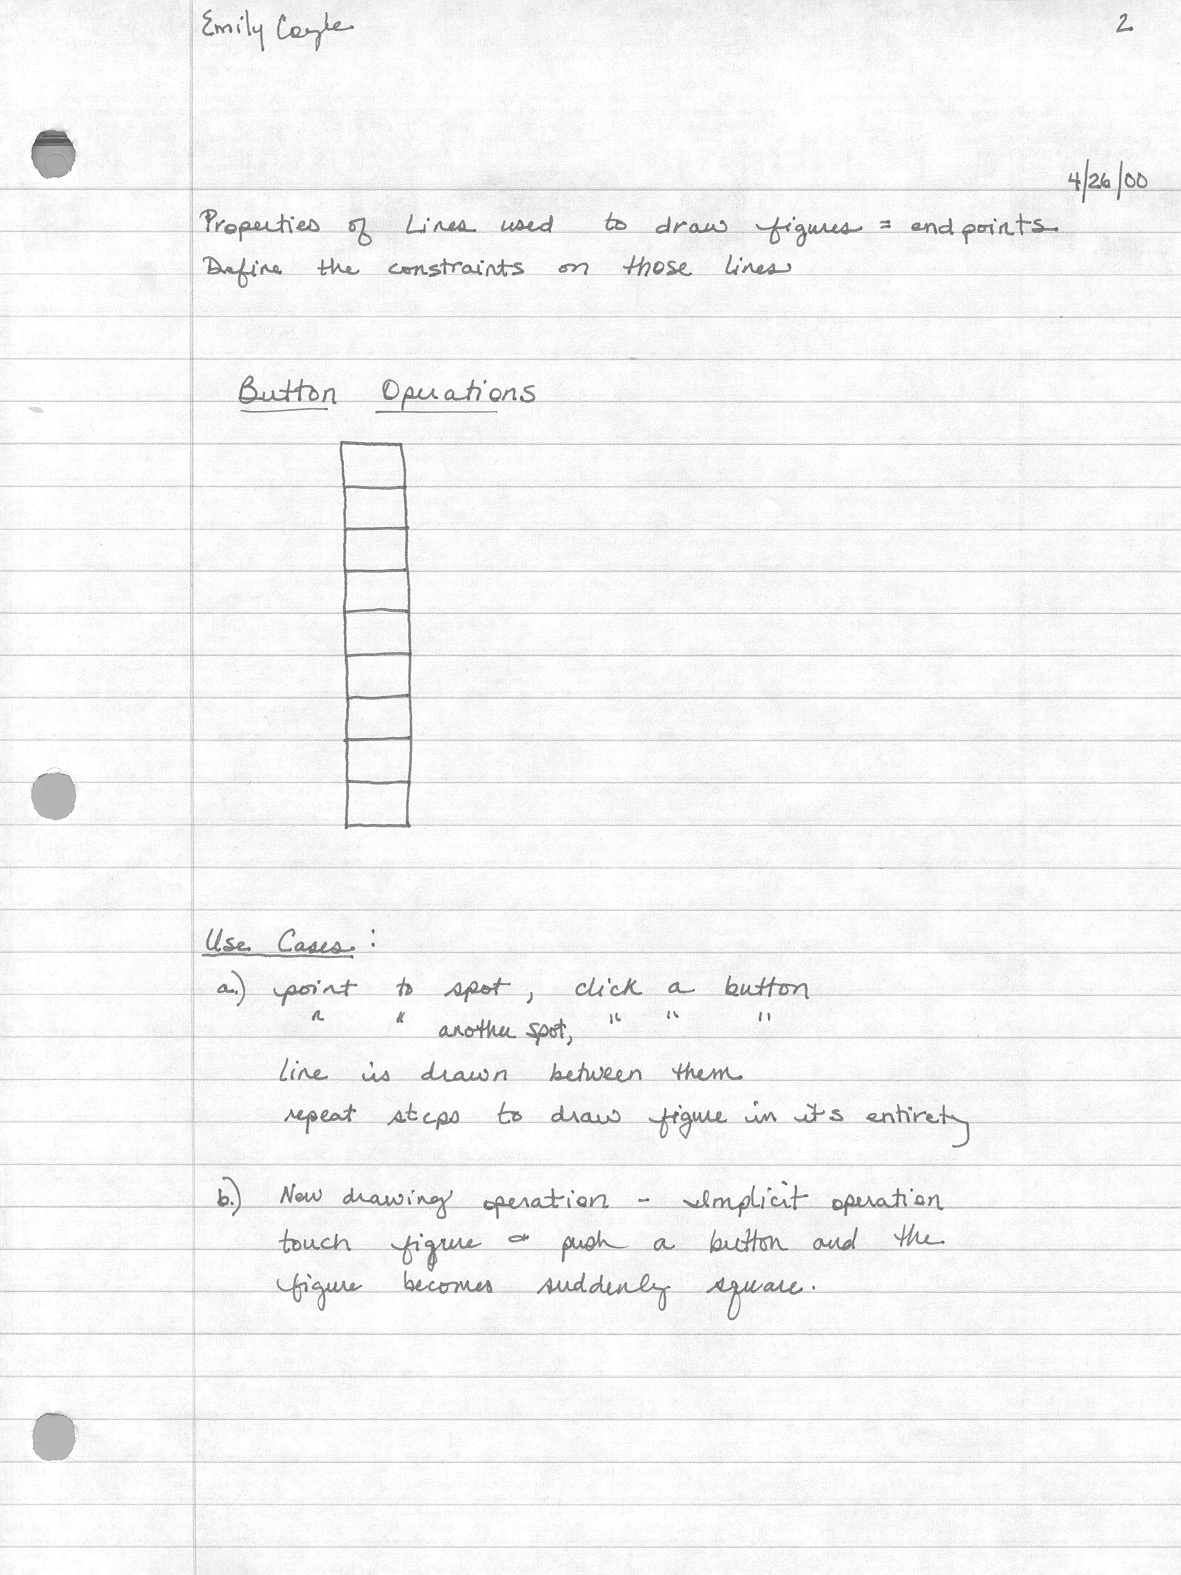 Emily Cayle 2
4/26/00
Properties of Lines used to draw figures = endpoints
Define the constraints on those lines
Button Operations
Use Cases:
a.) point to spot, click a button
" " another spot, " " "
line is drawn between them
repeat steps to draw figure in it's entirety
b.) Now drawing operation - Implicit operation
touch figure push a button and the
figure becomes suddenly square.